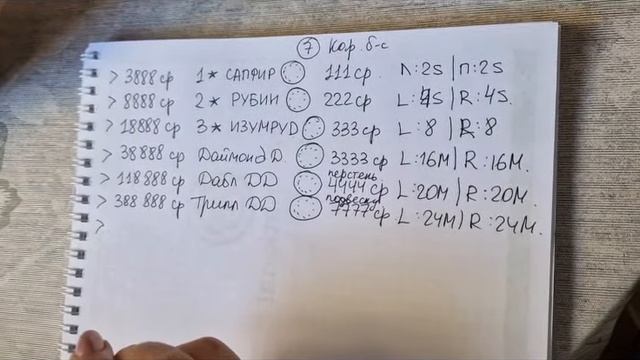 7 Кар. б-с
> 3888 ср 1★ САПФИР 111 ср. Л: 2S | П: 2S
> 8888 ср 2★ РУБИН 222 ср L: 4S | R: 4S.
> 18888 ср 3★ ИЗУМРУD 333 ср L: 8 | R: 8
> 38 888 ср Даймонд D. 3333 ср L: 16M | R: 16M.
> 118 888 ср Дабл DD перстень 4444 ср L: 20M | R: 20M.
> 388 888 ср Трипл DD подвеску 7777 ср L: 24M | R: 24M.
>